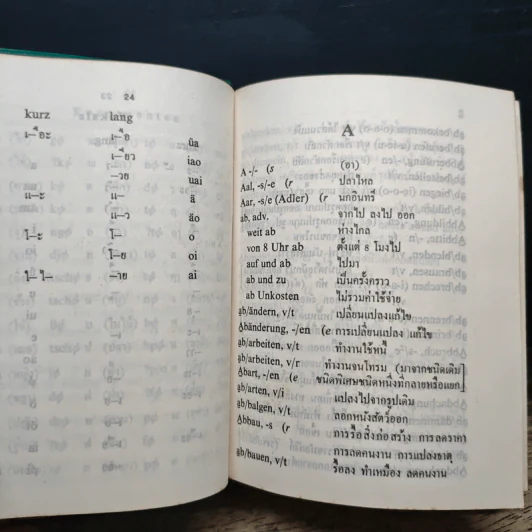 24
kurz lang
เ–ือะ เ–ือ üa
เ–ียว iao
–วย uai
แ–ะ แ– ä
แ–ว äo
โ–ะ โ– o
โ–ย oi
ไ– ใ– –าย ai
A
A -/- (s (อา)
Aal, -s/-e (r ปลาไหล
Aar, -s/e (Adler) (r นกอินทรี
ab, adv. จากไป ลงไป ออก
weit ab ห่างไกล
von 8 Uhr ab ตั้งแต่ 8 โมงไป
auf und ab ไปมา
ab und zu เป็นครั้งคราว
ab Unkosten ไม่รวมค่าใช้จ่าย
ab/ändern, v/t เปลี่ยนแปลงแก้ไข
Abänderung, -/en (e การเปลี่ยนแปลง แก้ไข
ab/arbeiten, v/t ทำงานใช้หนี้
ab/arbeiten, v/r ทำงานจนโทรม (มาจากชนิดเดิม
Abart, -/en (e ชนิดพิเศษชนิดหนึ่งที่กลายหรือแยก
ab/arten, v/i แปลงไปจากรูปเดิม
ab/balgen, v/t ลอกหนังสัตว์ออก
Abbau, -s (r การรื้อสิ่งก่อสร้าง การลดราคา
การลดคนงาน การแปลงธาตุ
ab/bauen, v/t รื้อลง ทำเหมือง ลดคนงาน